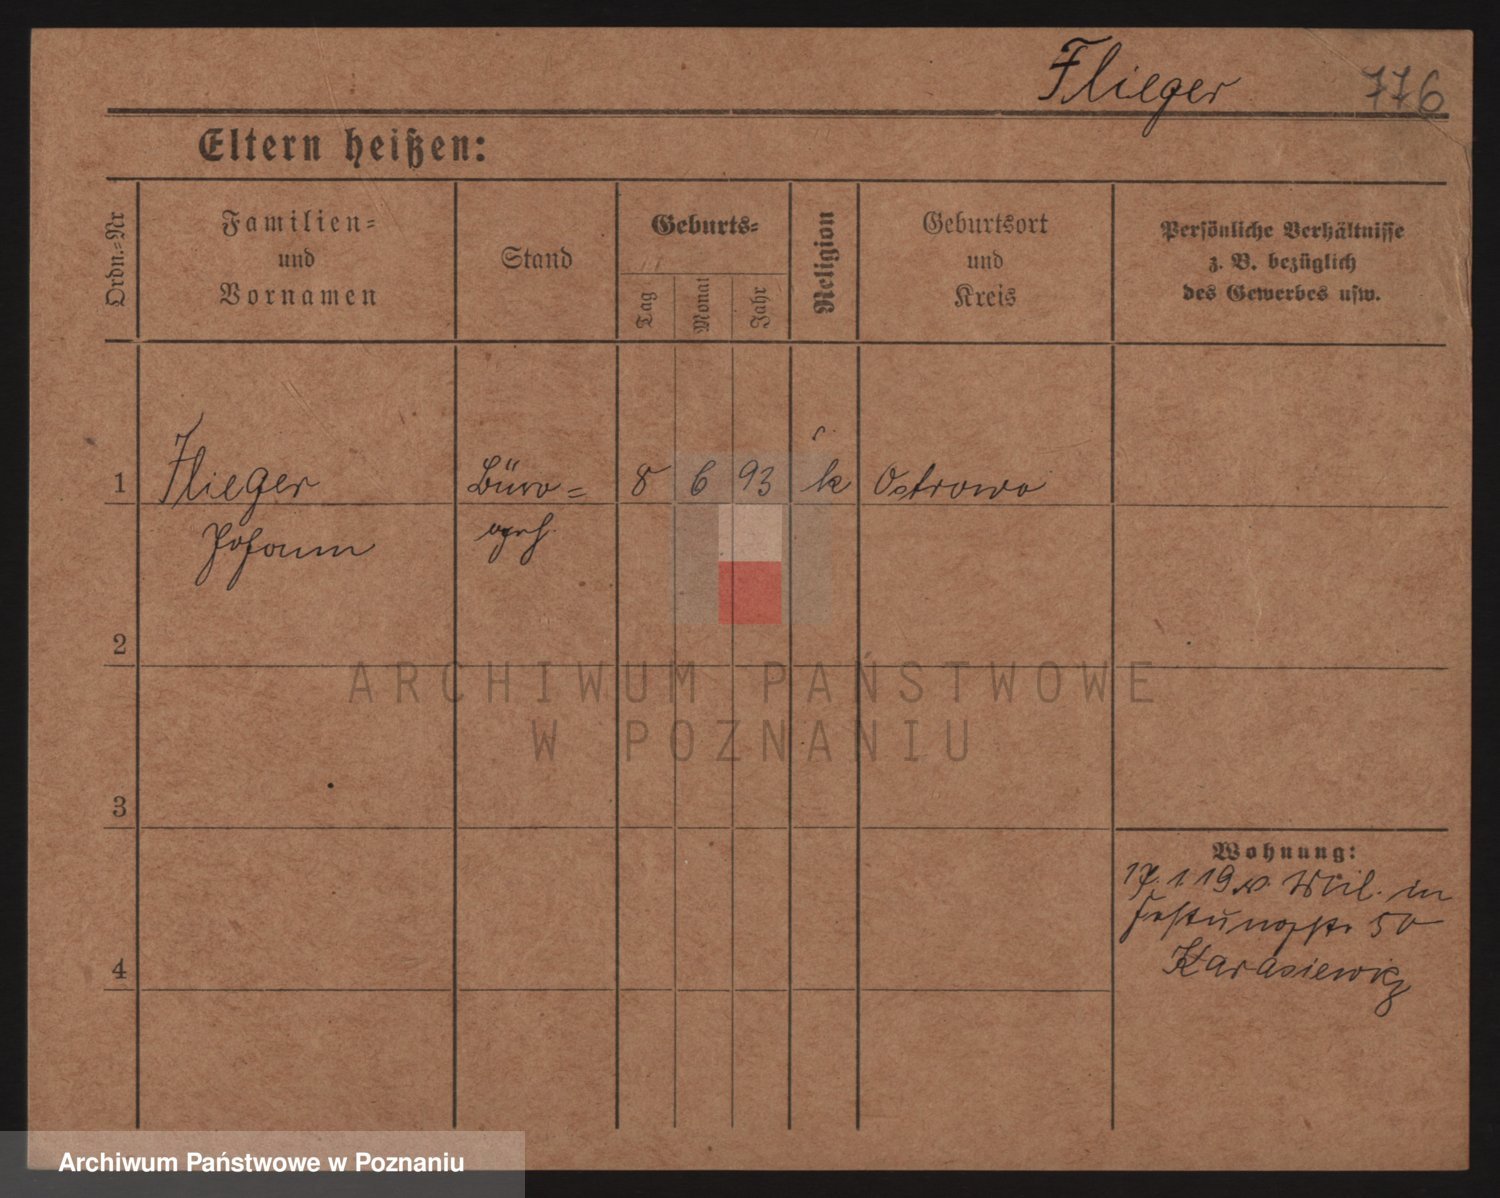 Flieger 776
Eltern heißen:
Ordn.=Nr
Familien=
und
Vornamen
Stand
Geburts=
Tag
Monat
Jahr
Religion
Geburtsort
und
Kreis
Persönliche Verhältnisse
z. B. bezüglich
des Gewerbes usw.
1 Flieger Büro= 8 6 93 k Ostrowo
Johann
2
3
4
Wohnung:
17. 1 19 v. in
Festungsstr 50
Karasiewicz
ARCHIWUM PAŃSTWOWE
W POZNANIU
Archiwum Państwowe w Poznaniu